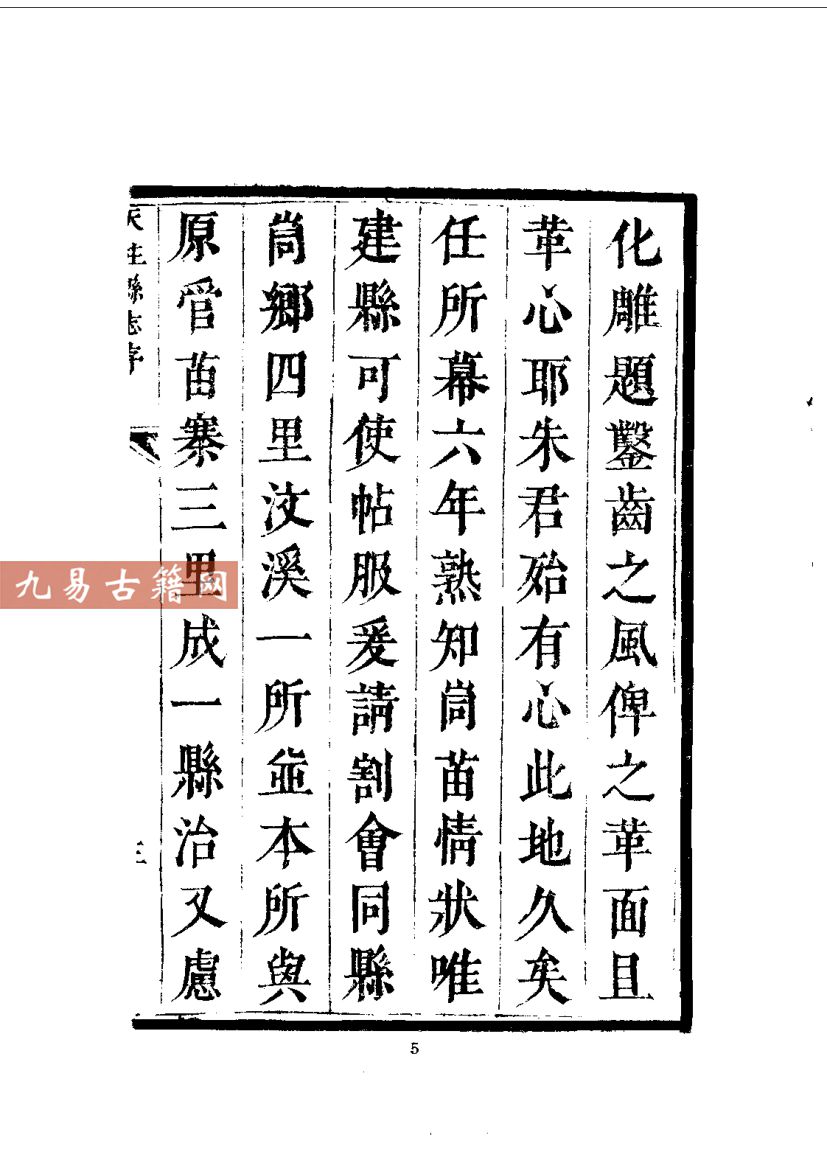 化雕題鑿齒之風俾之革面且
革心耶朱君殆有心此地久矣
任所幕六年熟知峝苗情狀唯
建縣可使帖服爰請割會同縣
峝鄉四里汶溪一所並本所與
原管苗寨三里成一縣治又慮
天柱縣志序
三
九易古籍网
5